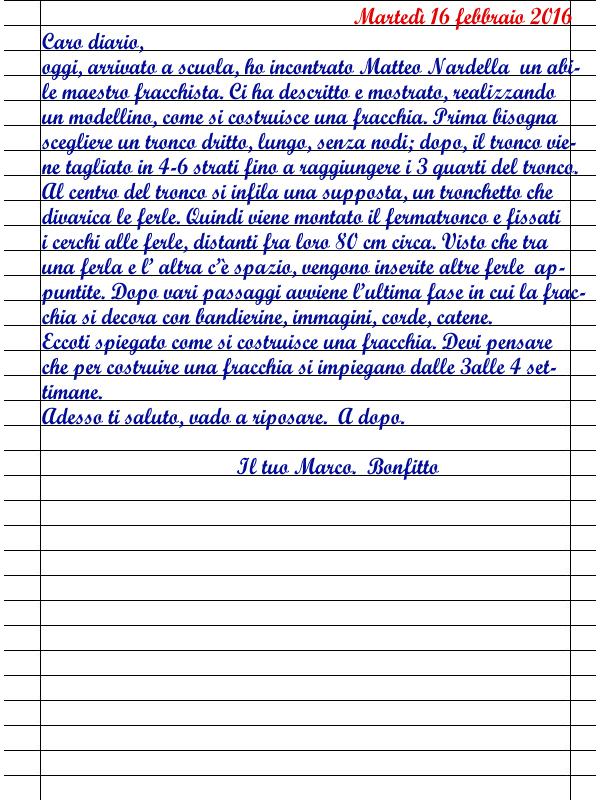 Martedì 16 febbraio 2016
Caro diario,
oggi, arrivato a scuola, ho incontrato Matteo Nardella  un abi-
le maestro fracchista. Ci ha descritto e mostrato, realizzando
un modellino, come si costruisce una fracchia. Prima bisogna
scegliere un tronco dritto, lungo, senza nodi; dopo, il tronco vie-
ne tagliato in 4-6 strati fino a raggiungere i 3 quarti del tronco.
Al centro del tronco si infila una supposta, un tronchetto che
divarica le ferle. Quindi viene montato il fermatronco e fissati
i cerchi alle ferle, distanti fra loro 80 cm circa. Visto che tra
una ferla e l' altra c'è spazio, vengono inserite altre ferle  ap-
puntite. Dopo vari passaggi avviene l'ultima fase in cui la frac-
chia si decora con bandierine, immagini, corde, catene.
Eccoti spiegato come si costruisce una fracchia. Devi pensare
che per costruire una fracchia si impiegano dalle 3alle 4 set-
timane.
Adesso ti saluto, vado a riposare.  A dopo.
Il tuo Marco.  Bonfitto